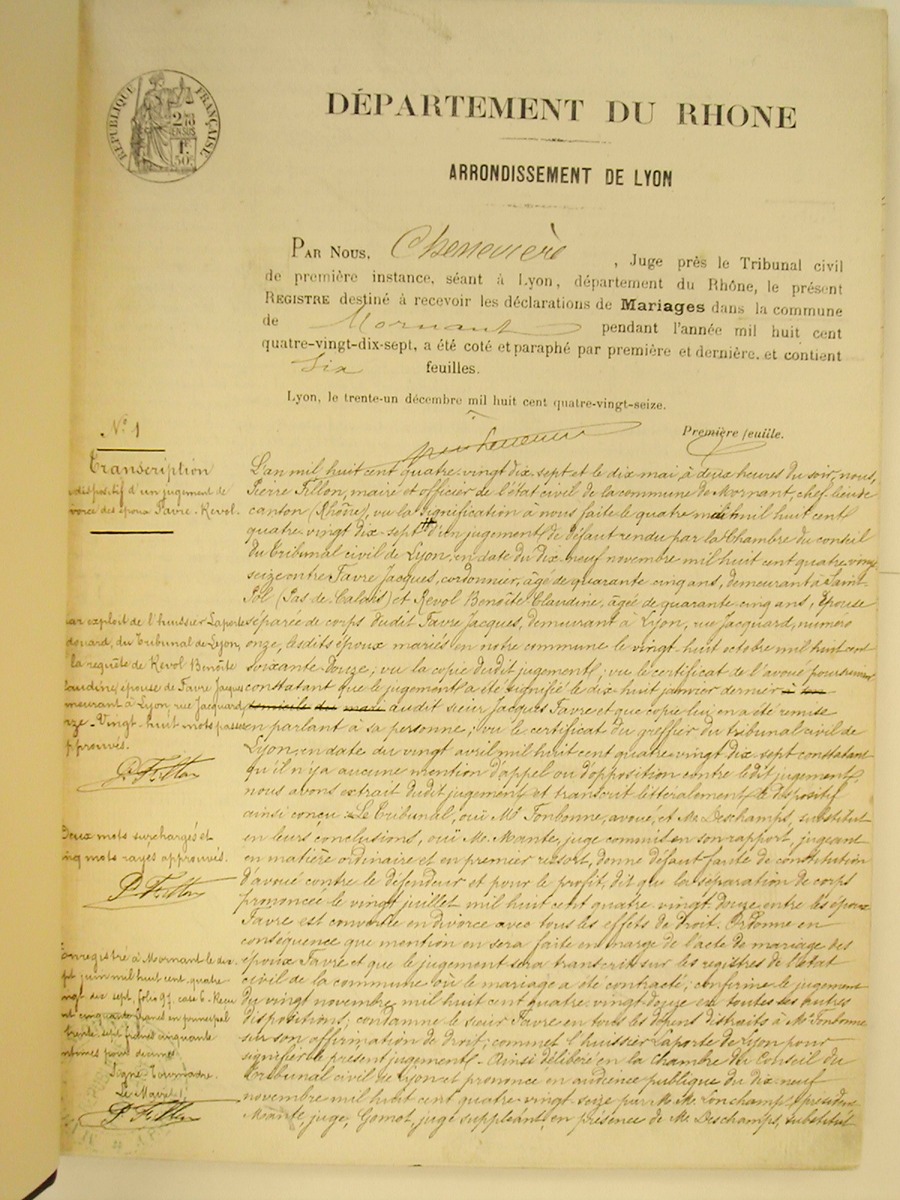 RÉPUBLIQUE FRANÇAISE
2/10 EN SUS
1f 50c
DÉPARTEMENT DU RHONE
ARRONDISSEMENT DE LYON
PAR NOUS, Chenevière, Juge près le Tribunal civil
de première instance, séant à Lyon, département du Rhône, le présent
REGISTRE destiné à recevoir les déclarations de Mariages dans la commune
de Mornant pendant l'année mil huit cent
quatre-vingt-dix-sept, a été coté et paraphé par première et dernière, et contient
Six feuilles.
Lyon, le trente-un décembre mil huit cent quatre-vingt-seize.
Première feuille.
N° 1
Transcription
dispositif d'un jugement de
divorce des époux Favre-Revol.
L'an mil huit cent quatre-vingt dix-sept et le dix mai à deux heures du soir, nous,
Pierre Fillon, maire et officier de l'état civil de la commune de Mornant, chef-lieu de
canton (Rhône), vu la signification à nous faite le quatre mai mil huit cent
quatre vingt dix sept d'un jugement de défaut rendu par la Chambre du conseil
du tribunal civil de Lyon, en date du dix-neuf novembre mil huit cent quatre vingt
seize entre Favre Jacques, cordonnier, âgé de quarante cinq ans, demeurant à Saint
Pol (Pas-de-Calais) et Revol Benoîte Claudine, âgée de quarante-cinq ans, épouse
séparée de corps dudit Favre Jacques, demeurant à Lyon, rue Jacquard, numéro
onze, lesdits époux mariés en notre commune le vingt-huit octobre mil huit cent
soixante-douze; vu la copie dudit jugement; vu le certificat de l'avoué poursuivant
constatant que le jugement a été signifié le dix huit janvier dernier à son
domicile du mari audit sieur Jacques Favre et que copie lui en a été remise
en parlant à sa personne; vu le certificat du greffier du tribunal civil de
Lyon, en date du vingt avril mil huit cent quatre vingt dix sept constatant
qu'il n'y a aucune mention d'appel ou d'opposition contre ledit jugement,
nous avons extrait dudit jugement et transcrit littéralement le dispositif
ainsi conçu: Le Tribunal, ouï Me Fonbonne, avoué, et M. Deschamps, substitut
en leurs conclusions, ouï M. Mante, juge commis en son rapport, jugeant
en matière ordinaire et en premier ressort, donne défaut faute de constitution
d'avoué contre le défendeur et pour le profit, dit que la séparation de corps
prononcée le vingt juillet mil huit cent quatre vingt douze entre les époux
Favre est convertie en divorce avec tous les effets de droit. Ordonne en
conséquence que mention en sera faite en marge de l'acte de mariage des
époux Favre et que le jugement sera transcrit sur les registres de l'état
civil de la commune où le mariage a été contracté; confirme le jugement
du vingt novembre mil huit cent quatre vingt douze en toutes ses autres
dispositions; condamne le sieur Favre en tous les dépens distraits à Me Fonbonne
sur son affirmation de droit; commet l'huissier Laporte de Lyon pour
signifier le présent jugement. Ainsi délibéré en la Chambre du Conseil du
Tribunal civil de Lyon et prononcé en audience publique du dix neuf
novembre mil huit cent quatre-vingt seize par M.M. Lonchamp, président
Mante, juge, Gomot, juge suppléant, en présence de M. Deschamps, substitut
par exploit de l'huissier Laporte
Édouard, du Tribunal de Lyon,
la requête de Revol Benoîte
Claudine, épouse de Favre Jacques
demeurant à Lyon rue Jacquard,
onze. Vingt-huit mots passés
approuvés.
P. Fillon
Deux mots surchargés et
cinq mots rayés approuvés.
P. Fillon
Enregistré à Mornant le dix
sept juin mil huit cent quatre
vingt dix sept, folio 97, case 6. Reçu
cent cinquante francs en principal
trente sept francs cinquante
centimes pour décimes.
Signé
Le Maire
P. Fillon